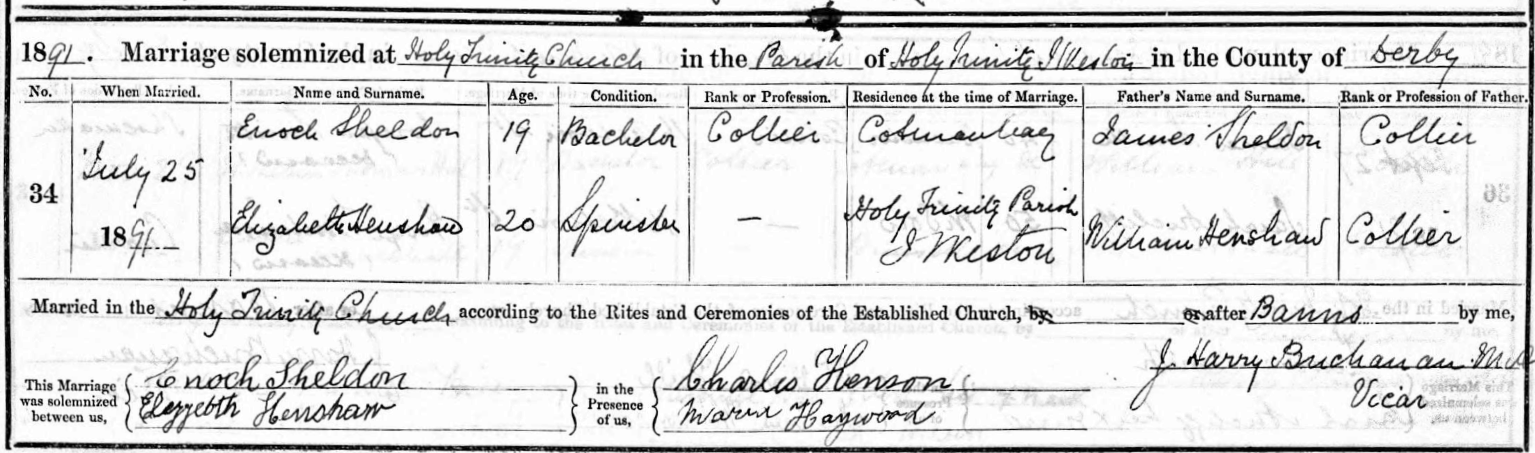 1891. Marriage solemnized at Holy Trinity Church in the Parish of Holy Trinity Ilkeston in the County of Derby
No. When Married. Name and Surname. Age. Condition. Rank or Profession. Residence at the time of Marriage. Father's Name and Surname. Rank or Profession of Father.
Enoch Sheldon 19 Bachelor Collier Cotmanhay James Sheldon Collier
34 July 25 1891 Elizabeth Henshaw 20 Spinster — Holy Trinity Parish Ilkeston William Henshaw Collier
Married in the Holy Trinity Church according to the Rites and Ceremonies of the Established Church, by or after Banns by me,
This Marriage was solemnized between us, Enoch Sheldon in the Presence of us, Charles Henson J. Harry Buchanan
Elezzebth Henshaw Haywood Vicar